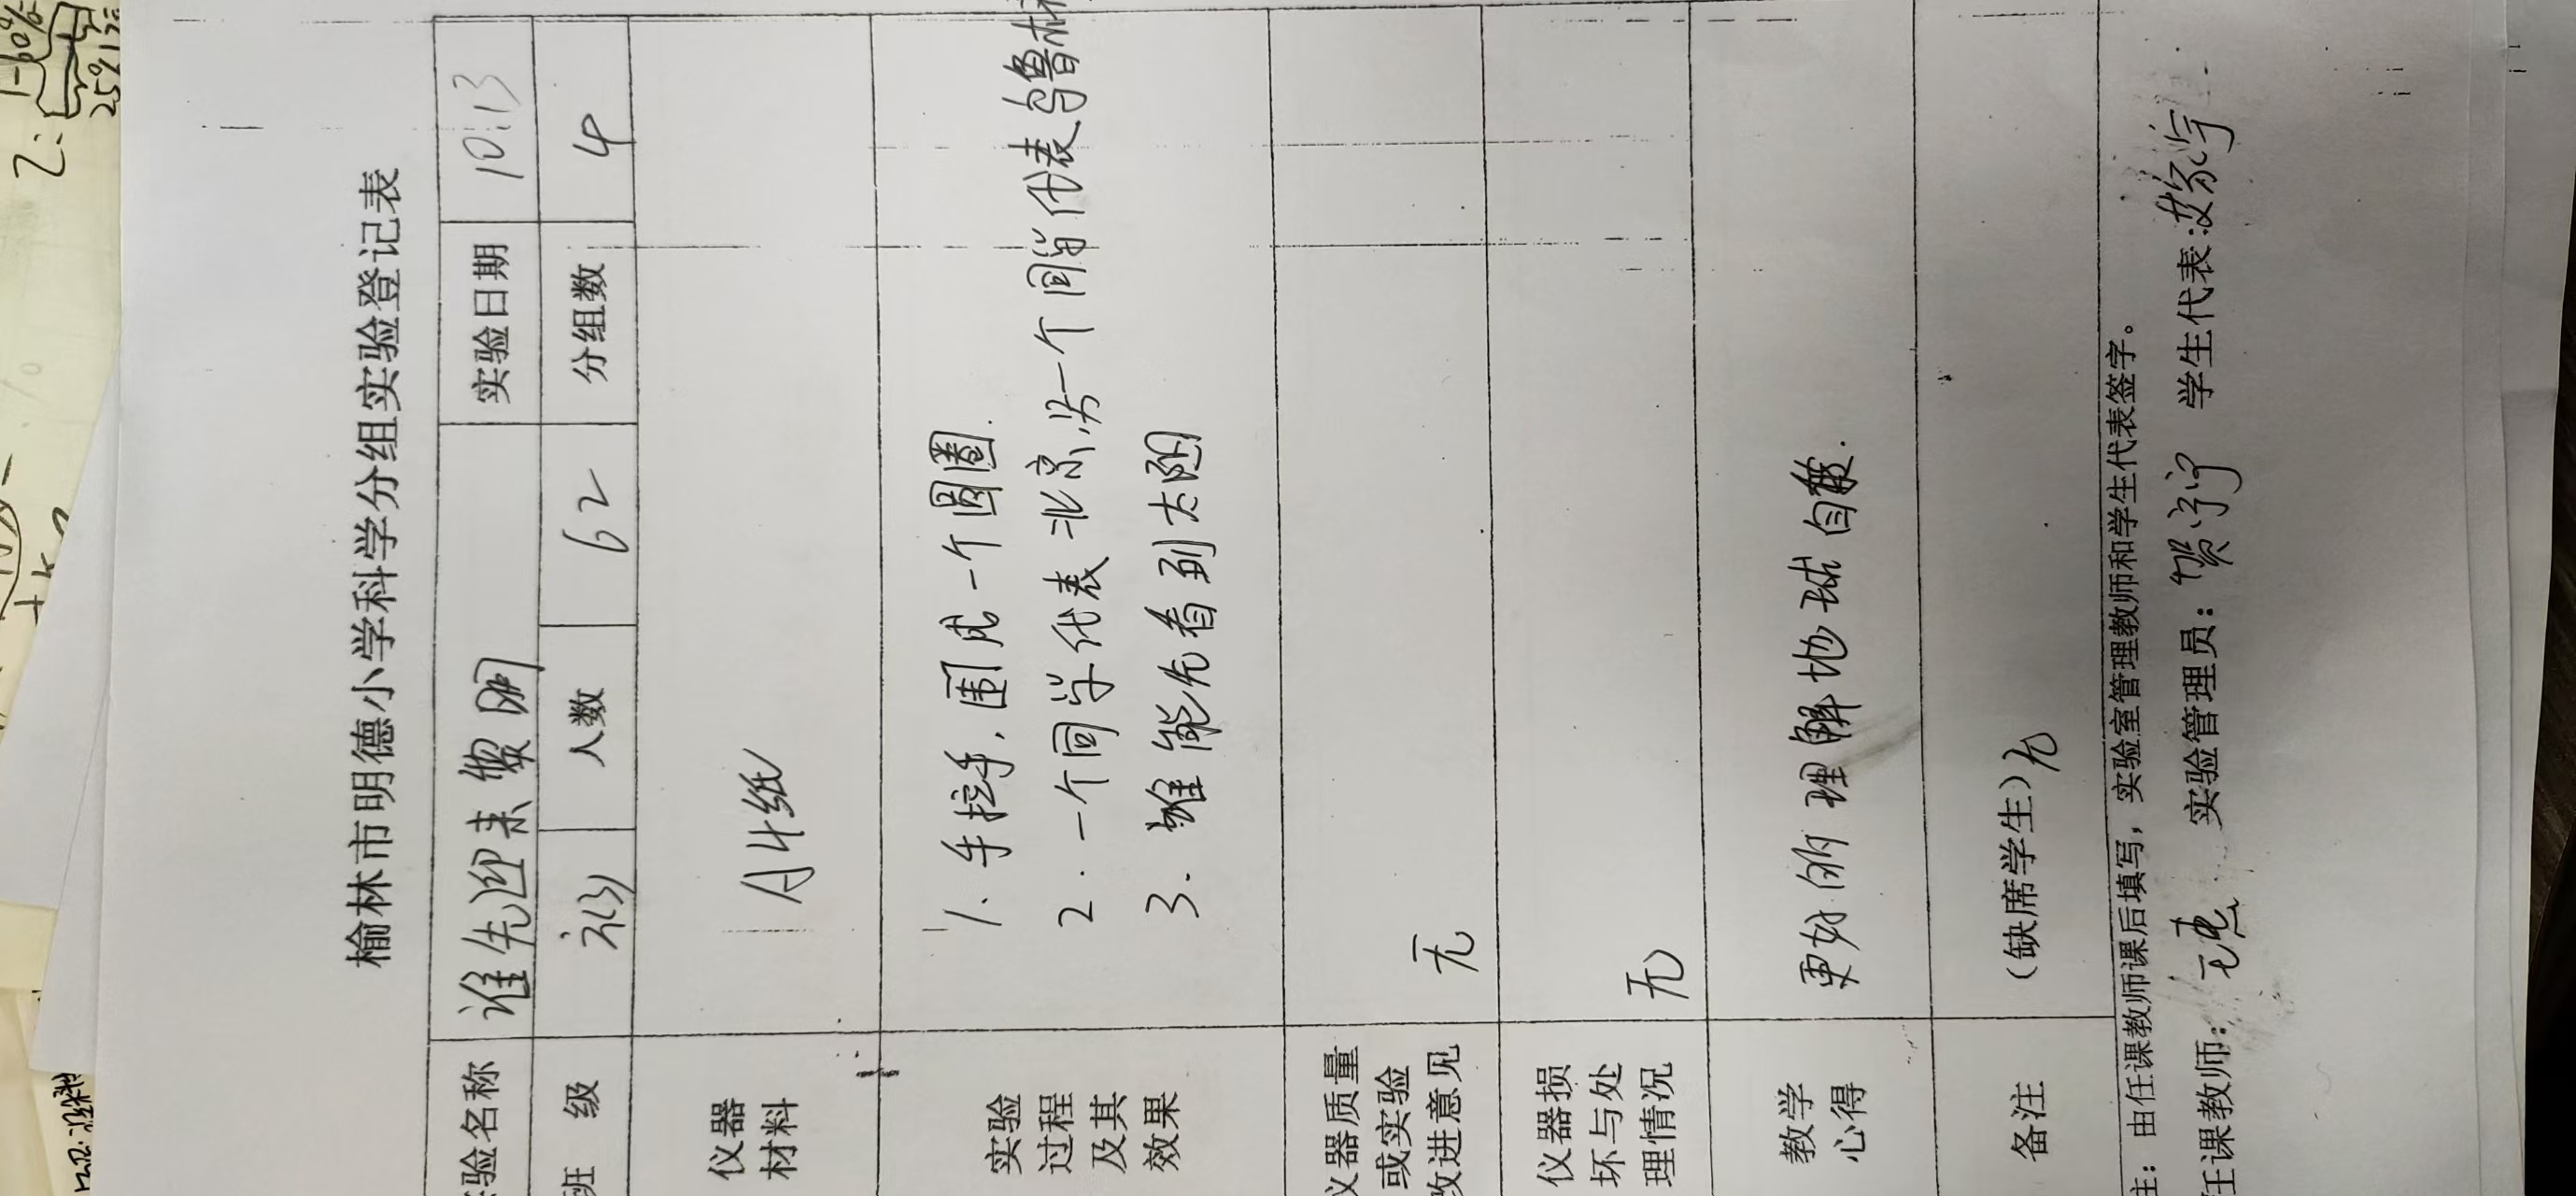 榆林市明德小学科学分组实验登记表
验名称 谁先迎来黎明 实验日期 10.13
班 级 人数 62 分组数 4
仪器
材料
A4纸
实验
过程
及其
效果
1. 手拉手,围成一个圆圈.
2. 一个同学代表北京,另一个同学代表乌鲁木
3. 谁能先看到太阳
仪器质量
或实验
改进意见
无
仪器损
坏与处
理情况
无
教学
心得
更好的理解地球自转.
备注
(缺席学生)无
注:由任课教师课后填写,实验室管理教师和学生代表签字。
任课教师: 实验管理员:贺宁宁 学生代表: